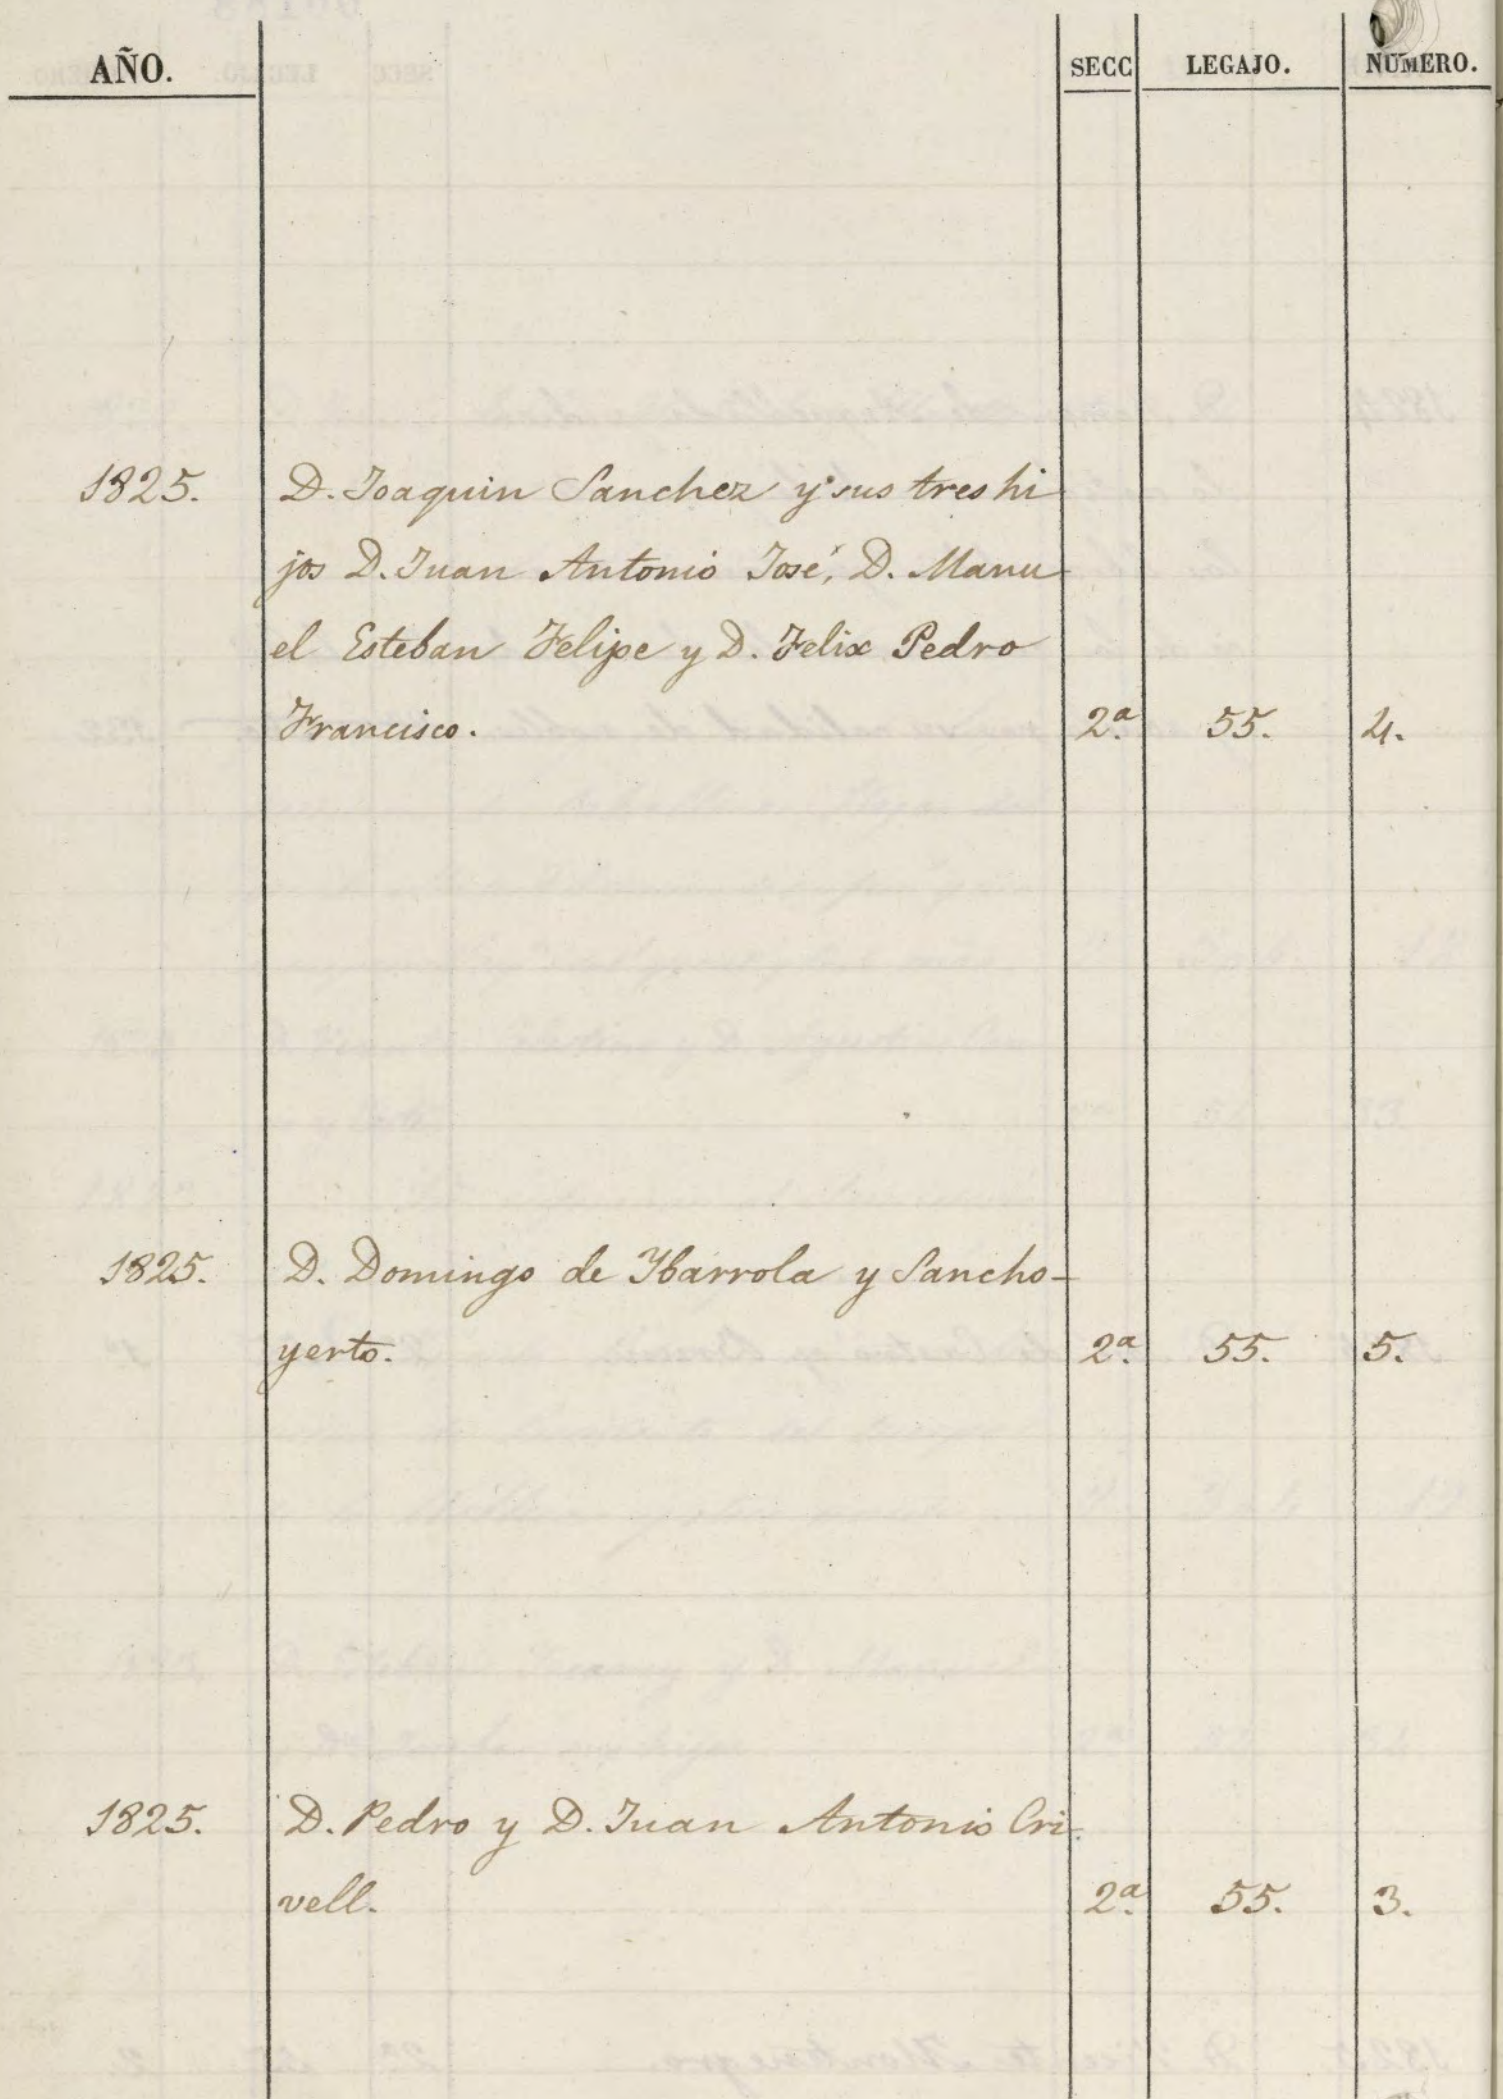 AÑO. SECC LEGAJO. NÚMERO.
1825. D. Joaquin Sanchez y sus tres hi
jos D. Juan Antonio José, D. Manu
el Esteban Felipe y D. Felix Pedro
Francisco. 2.ª 55. 4.
1825. D. Domingo de Ybarrola y Sancho-
yerto. 2.ª 55. 5.
1825. D. Pedro y D. Juan Antonio Cri-
vell. 2.ª 55. 3.